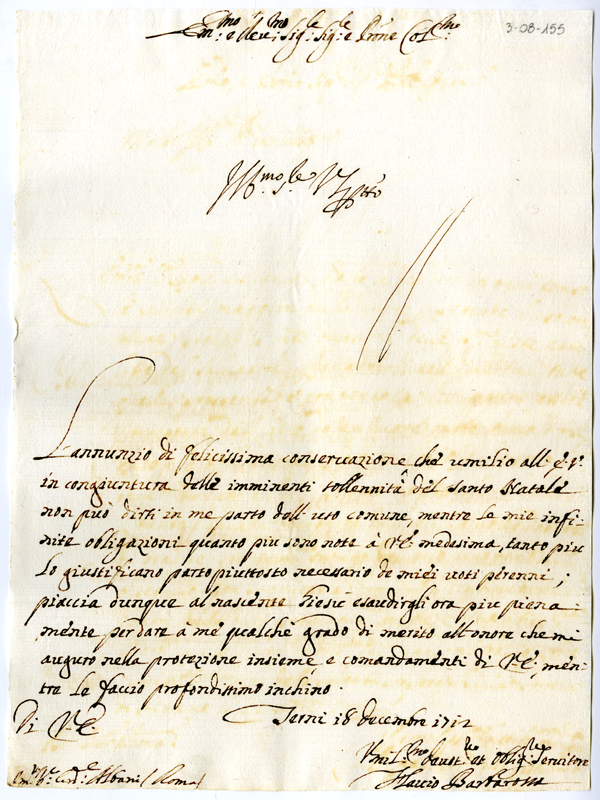 Em.mo e Rev.mo Sig.re Sig.re e Prōne Col.mo
3-08-155
L'annunzio di felicissima conseruazione che umilio all'E. V.
in congiuntura delle imminenti sollennità del Santo Natale
non può dirsi in me parto dell'uso comune, mentre le mie infi-
nite obligazioni quanto piu sono note à V. E. medesima, tanto piu
lo giustificano parto piuttosto necessario de miei uoti perenni;
piaccia dunque al nascente Giesù esaudirgli ora piu piena:
mente per dare à me qualche grado di merito all'onore che mi
auguro nella protezione insieme, e comandamenti di V. E., men:
tre le faccio profondissimo inchino.
Di V. E.
Terni 18 Decembre 1712
Vmil.mo Deuot.mo et Oblig.mo Seruitore
Flauio Barbarossa
Card.e Albani (Roma)